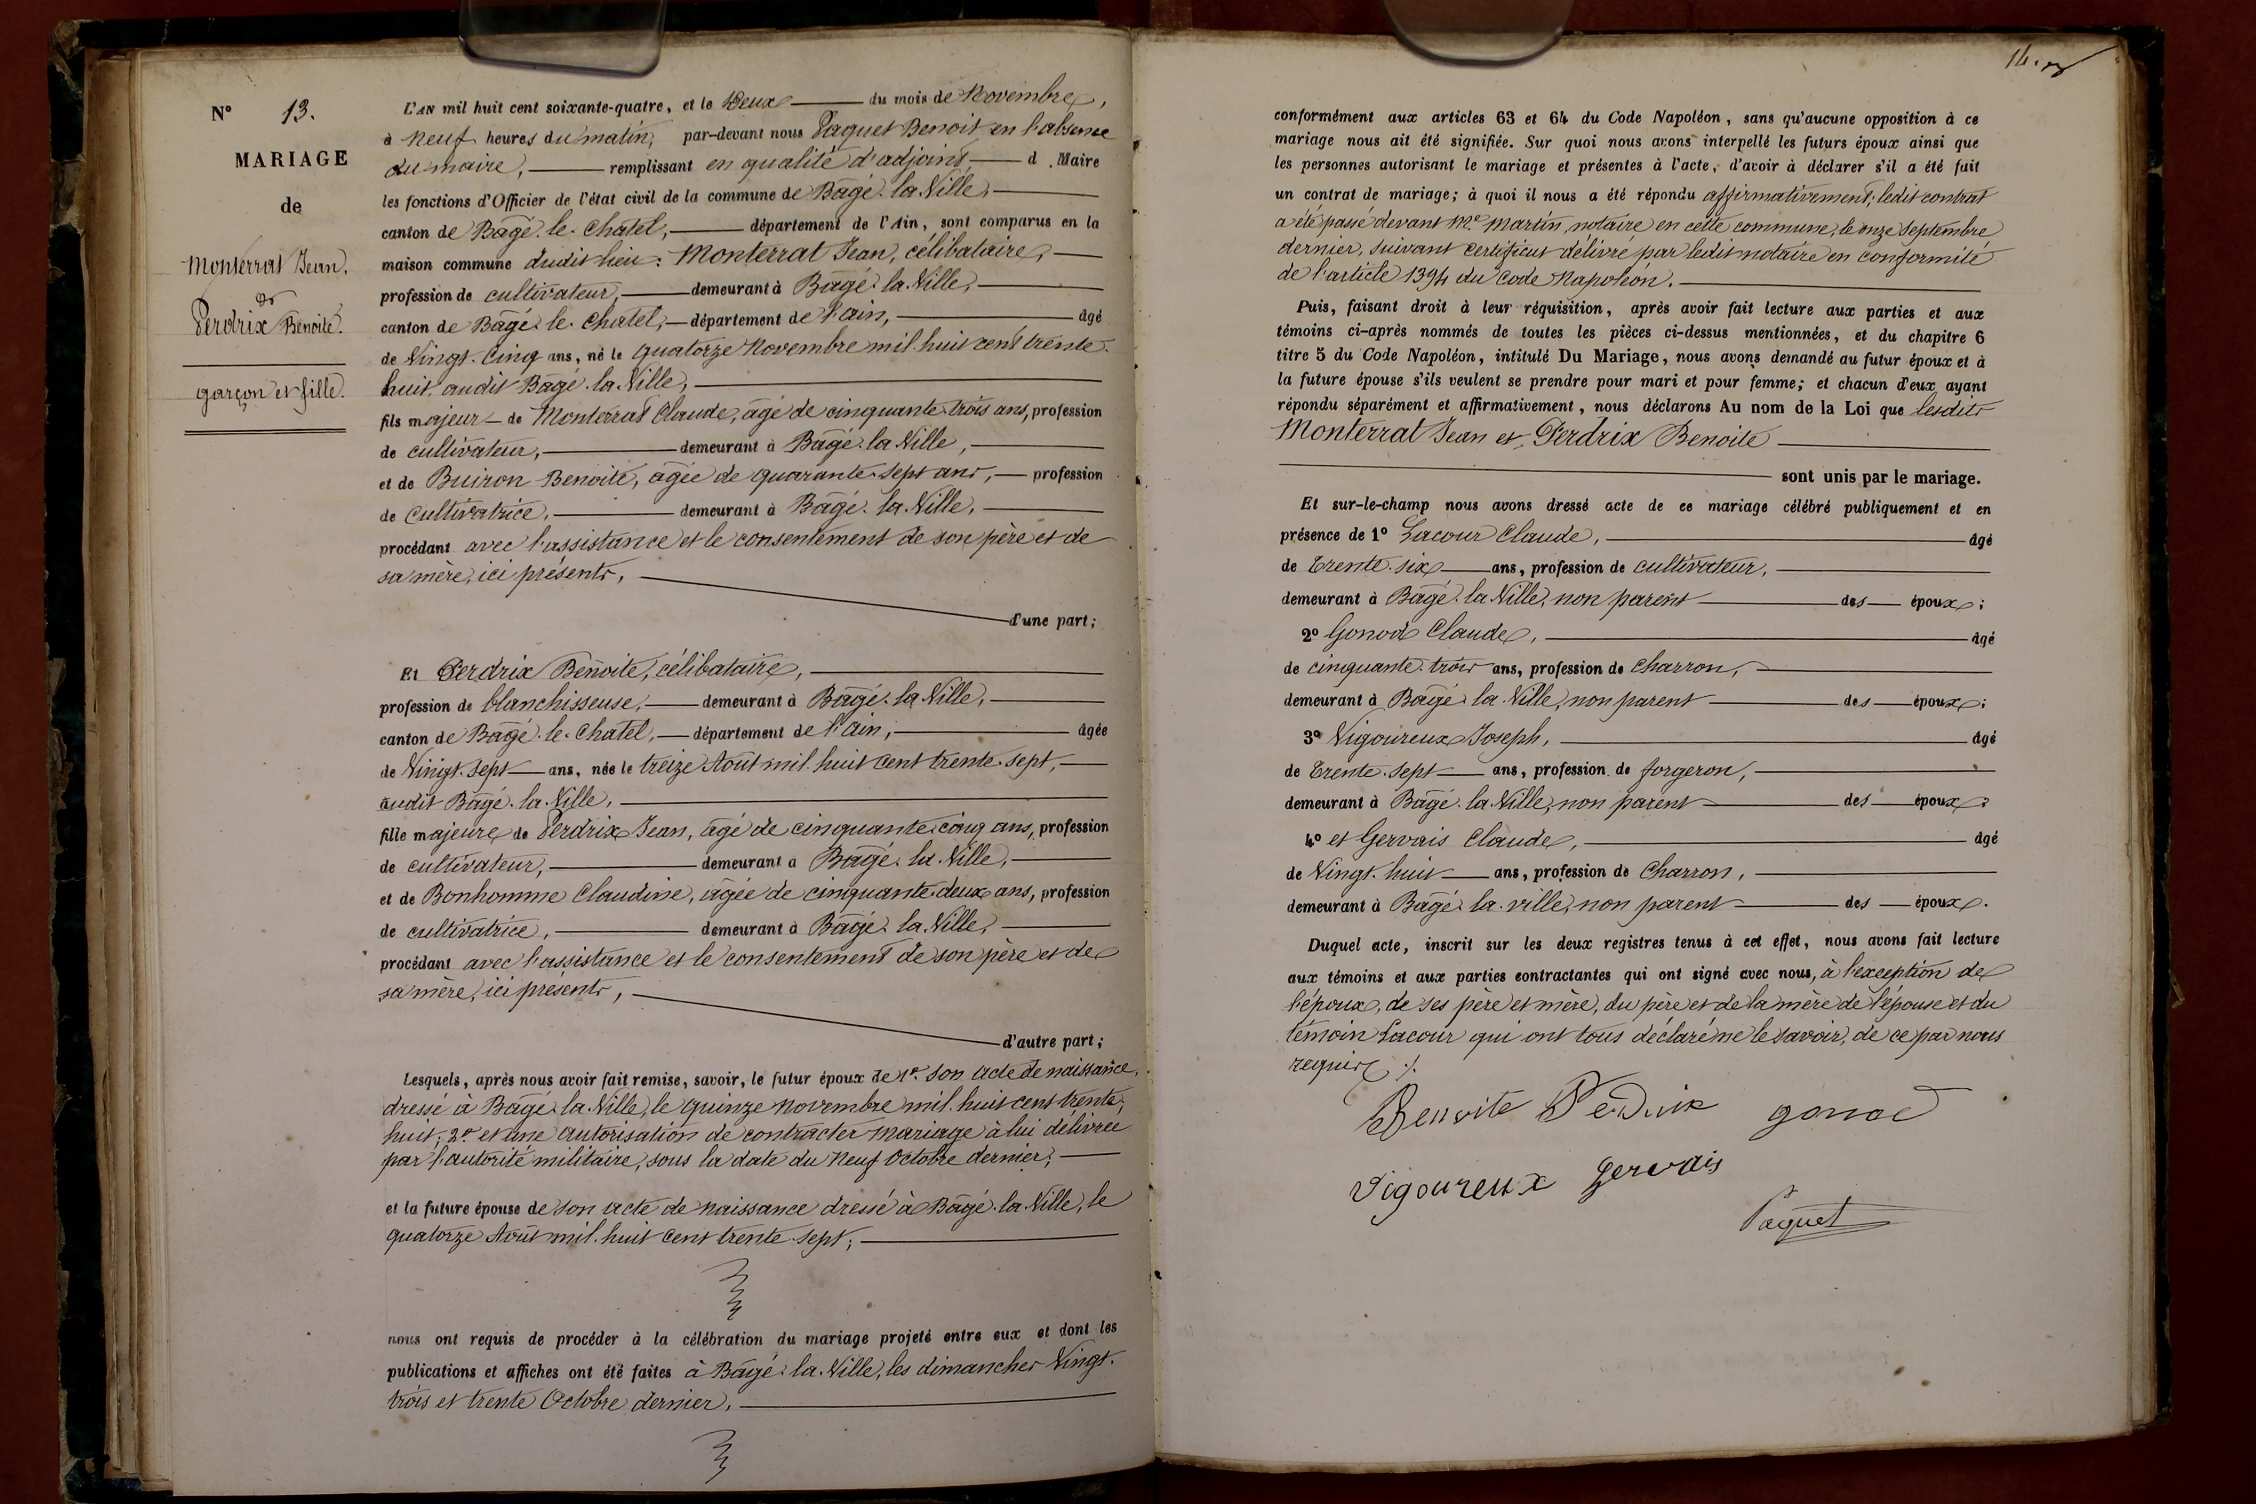 N° 13.
MARIAGE
de
Monterrat Jean.
&
Perdrix Benoite.
garçon et fille.
L'AN mil huit cent soixante-quatre, et le Deux du mois de Novembre,
à neuf heures du matin, par-devant nous Paquet Benoit en l'absence
du maire, remplissant en qualité d'adjoint d. Maire
les fonctions d'Officier de l'état civil de la commune de Bâgé-la-Ville,
canton de Bâgé-le-Chatel, département de l'Ain, sont comparus en la
maison commune dudit lieu: Monterrat Jean, célibataire,
profession de cultivateur, demeurant à Bâgé-la-Ville,
canton de Bâgé-le-Chatel, département de l'ain, âgé
de Vingt-Cinq ans, né le quatorze Novembre mil-huit cent trente-
huit, audit Bâgé-la-Ville,
fils majeur de Monterrat Claude, âgé de cinquante-trois ans, profession
de cultivateur, demeurant à Bâgé-la-Ville,
et de Buiron Benoite, âgée de quarante-sept ans, profession
de cultivatrice, demeurant à Bâgé-la-Ville,
procédant avec l'assistance et le consentement de son père et de
sa mère, ici présents,
d'une part;
Et Perdrix Benoite, célibataire,
profession de blanchisseuse, demeurant à Bâgé-la-Ville,
canton de Bâgé-le-Chatel, département de l'ain, âgée
de Vingt-sept ans, née le treize Août mil-huit cent trente-sept,
audit Bâgé-la-Ville,
fille majeure de Perdrix Jean, âgé de cinquante-cinq ans, profession
de cultivateur, demeurant à Bâgé-la-Ville,
et de Bonhomme Claudine, âgée de cinquante-deux ans, profession
de cultivatrice, demeurant à Bâgé-la-Ville,
procédant avec l'assistance et le consentement de son père et de
sa mère, ici présents,
d'autre part;
Lesquels, après nous avoir fait remise, savoir, le futur époux de 1° son acte de naissance,
dressé à Bâgé-la-Ville, le quinze novembre mil-huit cent trente-
huit; 2° et une autorisation de contracter mariage à lui délivrée
par l'autorité militaire, sous la date du Neuf Octobre dernier;
et la future épouse de son acte de naissance dressé à Bâgé-la-Ville, le
quatorze Août mil-huit cent trente-sept;
nous ont requis de procéder à la célébration du mariage projeté entre eux et dont les
publications et affiches ont été faites à Bâgé-la-Ville, les dimanches Vingt-
trois et trente Octobre dernier.
14.
conformément aux articles 63 et 64 du Code Napoléon, sans qu'aucune opposition à ce
mariage nous ait été signifiée. Sur quoi nous avons interpellé les futurs époux ainsi que
les personnes autorisant le mariage et présentes à l'acte, d'avoir à déclarer s'il a été fait
un contrat de mariage; à quoi il nous a été répondu affirmativement; ledit contrat
a été passé devant Me Martin, notaire en cette commune, le onze Septembre
dernier, suivant certificat délivré par ledit notaire en conformité
de l'article 1394 du Code Napoléon.
Puis, faisant droit à leur réquisition, après avoir fait lecture aux parties et aux
témoins ci-après nommés de toutes les pièces ci-dessus mentionnées, et du chapitre 6
titre 5 du Code Napoléon, intitulé Du Mariage, nous avons demandé au futur époux et à
la future épouse s'ils veulent se prendre pour mari et pour femme; et chacun d'eux ayant
répondu séparément et affirmativement, nous déclarons Au nom de la Loi que lesdits
Monterrat Jean et Perdrix Benoite
sont unis par le mariage.
Et sur-le-champ nous avons dressé acte de ce mariage célébré publiquement et en
présence de 1° Lacour Claude, âgé
de Trente-six ans, profession de cultivateur,
demeurant à Bâgé-la-Ville, non parent des époux;
2° Gonod Claude, âgé
de cinquante-trois ans, profession de Charron,
demeurant à Bâgé-la-Ville, non parent des époux;
3° Vigoureux Joseph, âgé
de Trente-sept ans, profession de forgeron,
demeurant à Bâgé-la-Ville, non parent des époux;
4° et Gervais Claude, âgé
de Vingt-huit ans, profession de Charron,
demeurant à Bâgé-la-ville, non parent des époux.
Duquel acte, inscrit sur les deux registres tenus à cet effet, nous avons fait lecture
aux témoins et aux parties contractantes qui ont signé avec nous, à l'exception de
l'époux, de ses père et mère, du père et de la mère de l'épouse et du
témoin Lacour qui ont tous déclaré ne le savoir, de ce par nous
requis ./.
Benoite Perdrix gonod
Vigoureux Gervais
Paquet